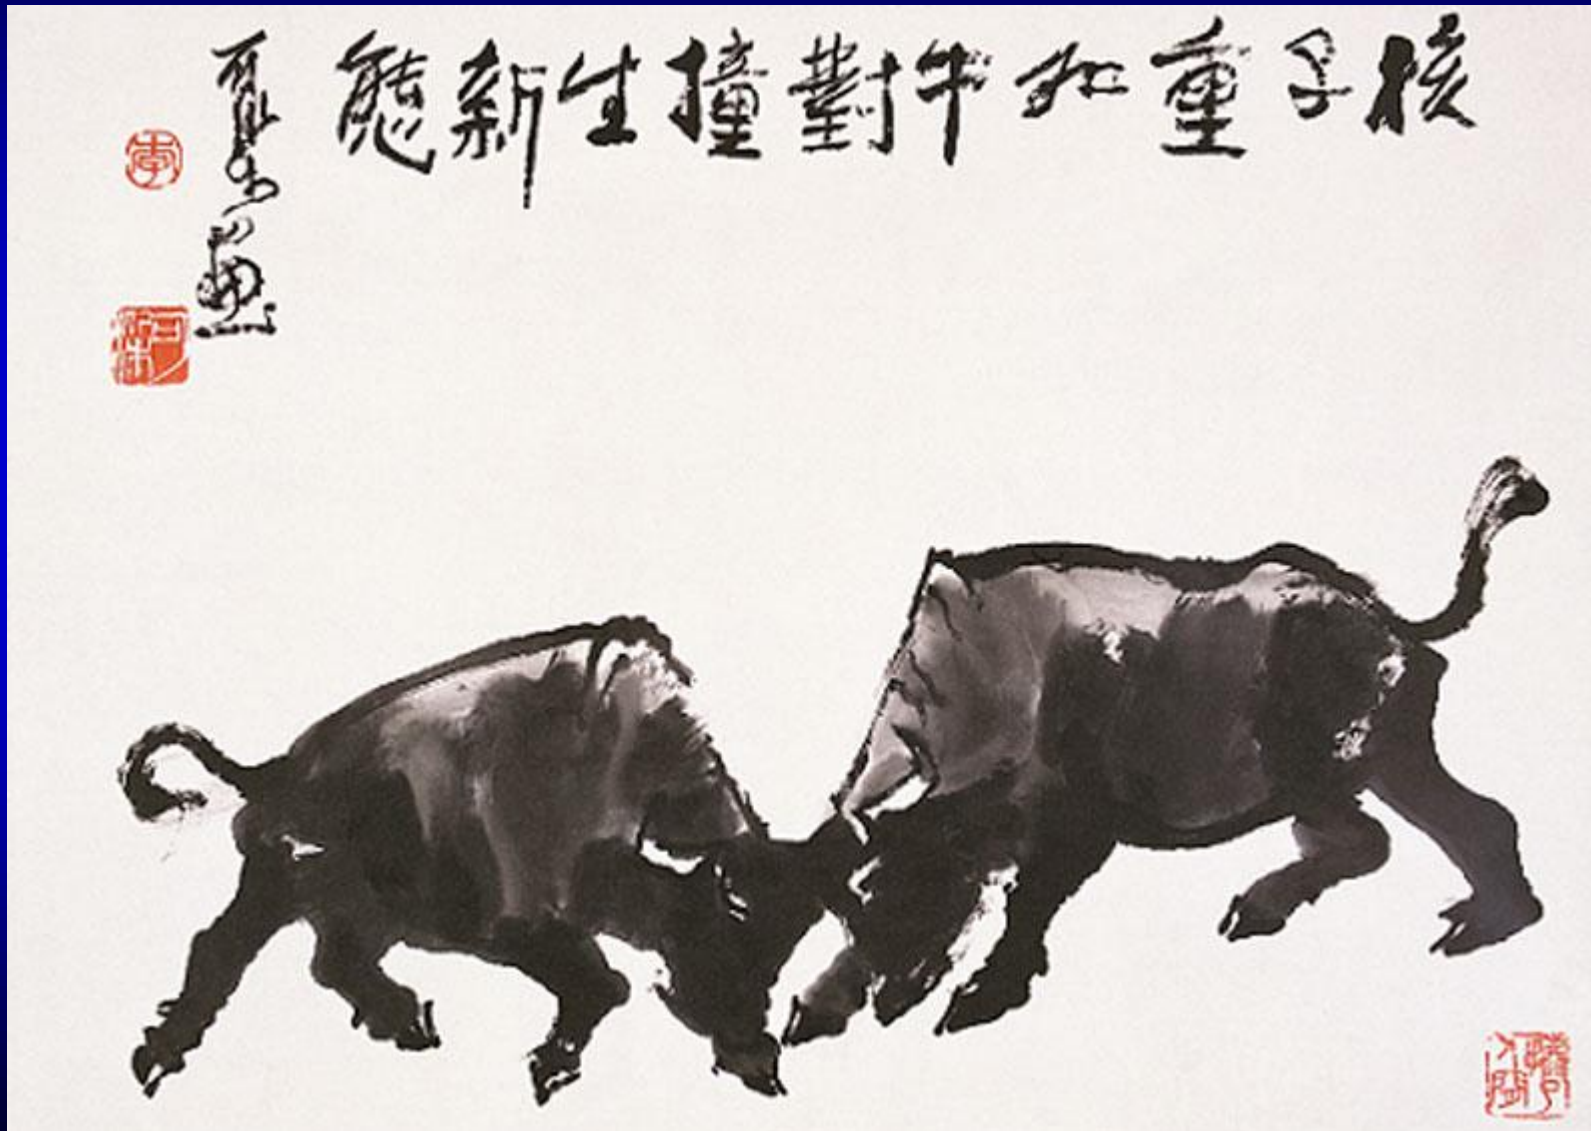 核子重如牛對撞生新態
可染畫
李
可染